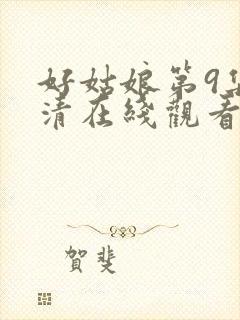 好姑娘第9集
清在綫觀看
賀斐